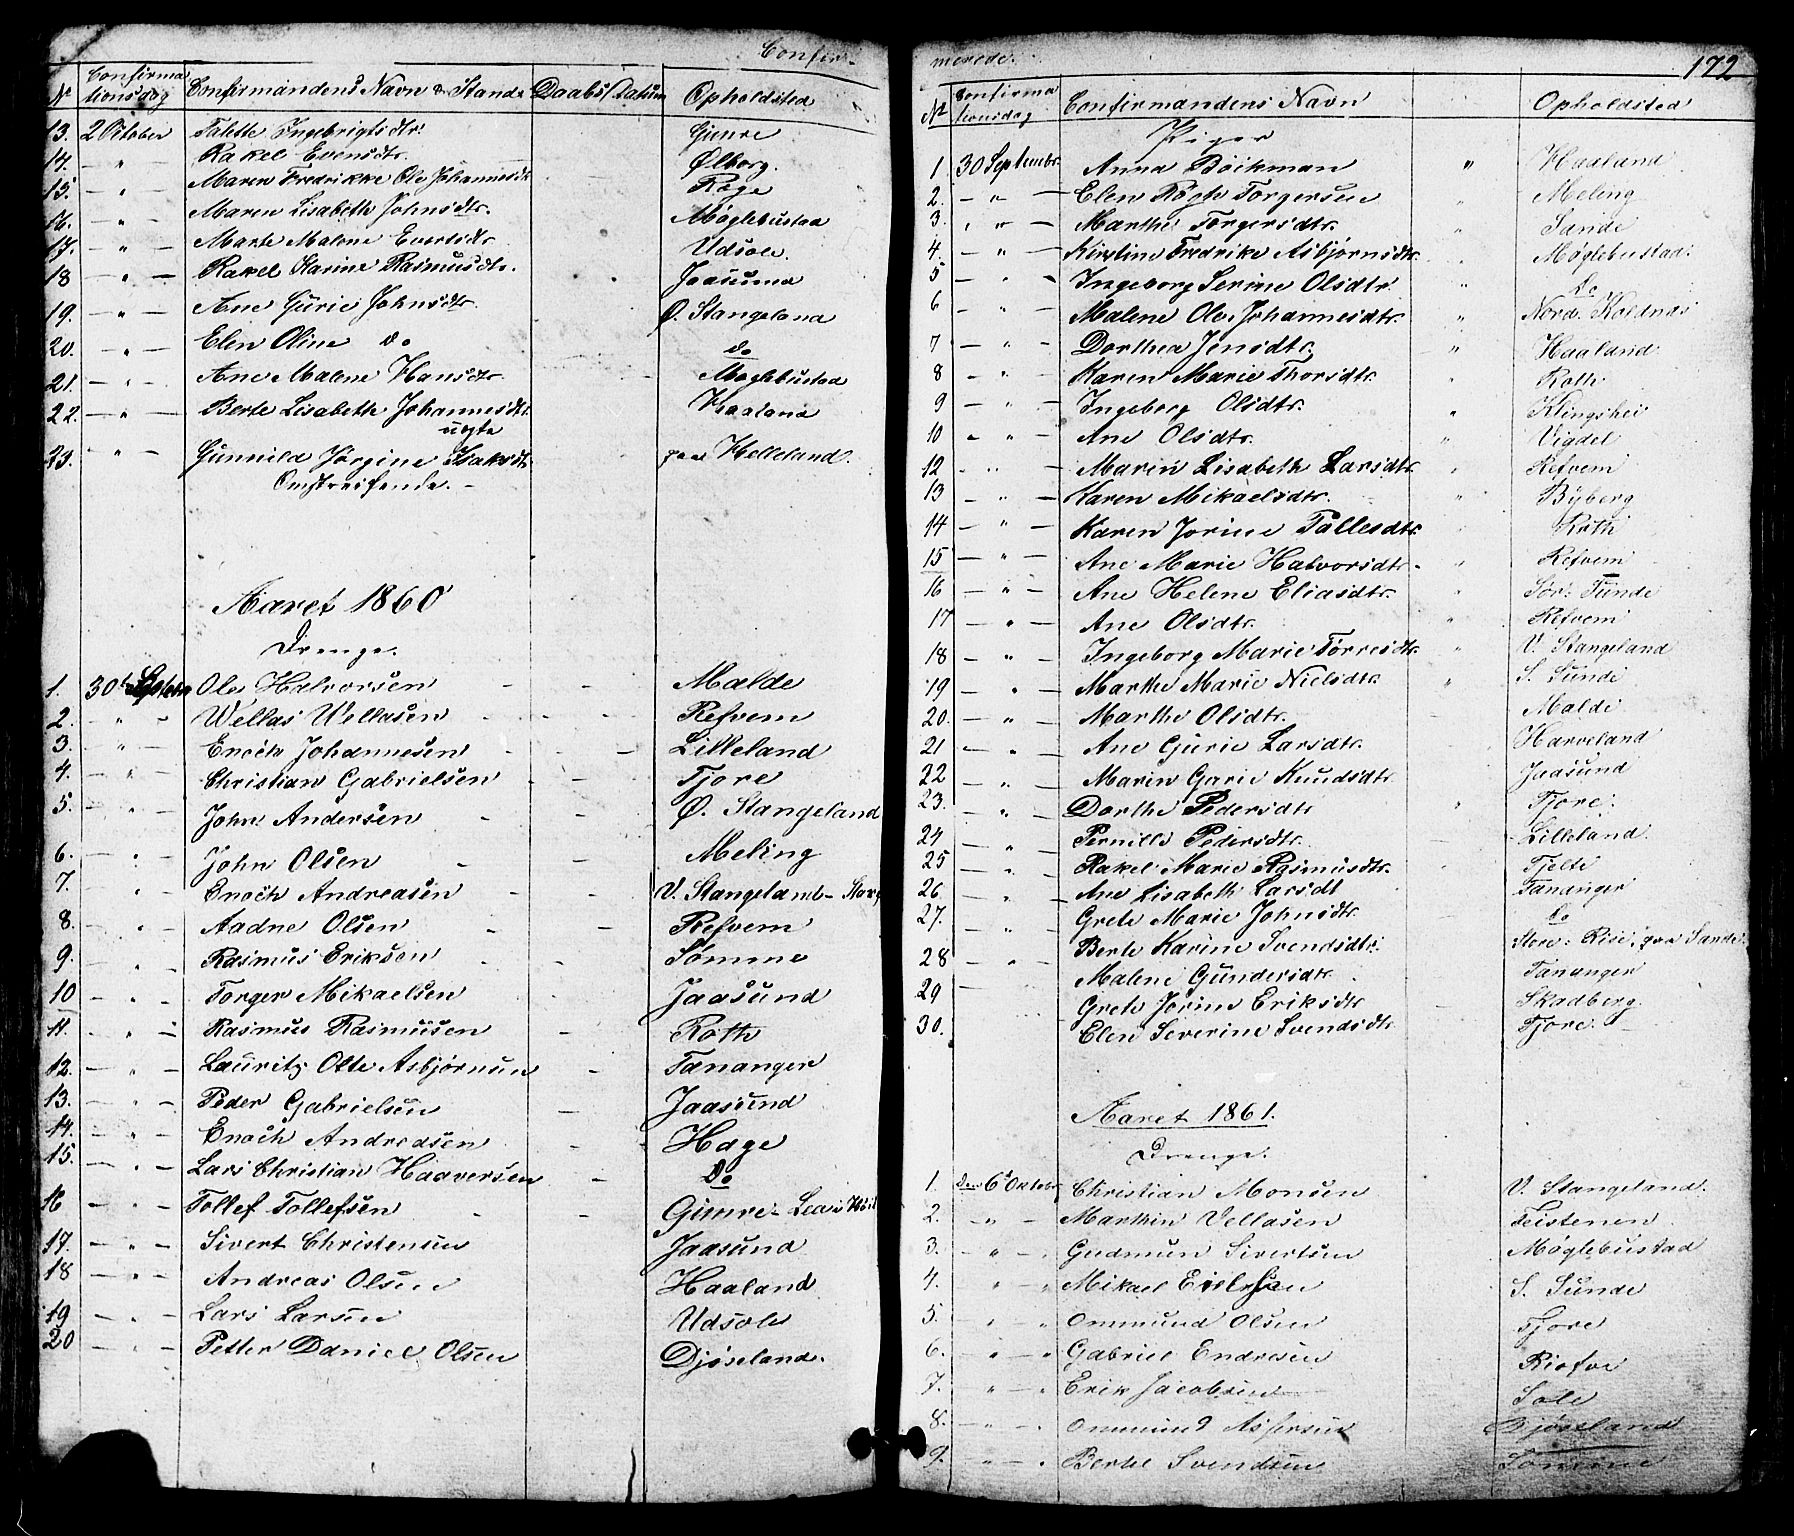 Confir-
No Confirmationsdag Confirmandens Navn & Stand Daabs Datum Opholdsted
13. 2 October Talette Ingebrigtsdtr. Gimre
14. — " — Rakel Evensdtr. Ølborg.
15. — " — Maren Fredrikke Ole Johannesdtr Røge
16. — " — Maren Lisabeth Johnsdtr. Møglebustad
17. — " — Marte Malene Evertsdtr Udsole.
18 — " — Rakel Karine Rasmusdtr. Jaasund
19. — " — Ane Gurie Johnsdtr. Ø. Stangeland
20. — " — Elen Oline do do
21. — " — Ane Malene Hansdtr. Møglebustad
22. — " — Berte Lisabeth Johannesdtr. Haaland
uegte
23. " — Gunnild Jørgine Isaksdtr. paa Helleland.
Omstreifende. -
Aaret 1860
Drenge.
1. 30te Septebr Ole Halvorsen - - Malde
2. " - Wellas Wellasen - - - Refvem
3. " — Enoch Johannesen - - - Lilleland
4. — " Christian Gabrielsen - - Tjore
5. — " John Andersen - - Ø. Stangeland
6. — " John Olsen - - Meling
7. — " Enoch Andreasen - - V. Stangeland -
8. — " Aadne Olsen - - Refvem
9. — " Rasmus Eriksen - - Sømme
10 — " Torger Mikaelsen - Jaasund
11. — " Rasmus Rasmussen - Roth
12. — " Lauritz Otte Asbjørnsen - Tananger
13. — " Peder Gabrielsen - Jaasund
14. — " Enoch Andreasen - Hage
15. — " Lars Christian Haaversen - Do
16 — " Tollef Tollefsen - - Gimre -
17. — " Sivert Christensen Jaasund
18 — " Andreas Olsen Haaland
19 — " Lars Larsen Udsole
20 — " Petter Daniel Olsen Djøseland.
merede. 172
No Confirmationsdag Confirmandens Navn Opholdsted
Piger
1 30 Septembr. Anna Böickman " Haaland
2. - " — Elen Røgh Torgersen " Meling
3. " — Marthe Torgersdtr. " Sande
4. — " — Kirstine Fredrike Asbjørnsdtr. Møglebustad.
5 - " - Ingeborg Serine Olsdtr " do
6 - " — Malene Ole Johannesdtr. " Nord. Koldnæs
7 - " — Dorthea Jensdtr. " Haaland.
8 — " — Karen Marie Thorsdtr. Roth
9 — " — Ingeborg Olsdtr. " Klingshei
10 - " — Ane Olsdtr. " Vigdel
12 - " — Maren Lisabeth Larsdtr. Refvem
13 - " — Karen Mikaelsdtr. " Byberg
14 — " — Karen Jorine Tallesdtr. Roth
15 — " — Ane Marie Halvorsdtr. " Refvem
16 — " — Ane Helene Eliasdtr. " Sør: Sunde
17 — " — Ane Olsdtr. " Refvem
18 — " — Ingeborg Marie Torresdtr. " V. Stangeland
19 — " — Marthe Marie Nielsdtr. " S. Sunde
20. — " — Marthe Olsdtr. Malde
21 — " Ane Gurie Larsdtr. Harveland
22 — " — Maren Garie Knudsdtr. Jaasund
23. — " — Dorthe Pedersdtr " Tjore.
24 — " — Pernille Pedersdtr. Lilleland.
25 — " — Rakel Marie Rasmusdtr. Tjelte
26. — " — Ane Lisabeth Larsdt Tananger
27. — " — Grete Marie Johnsdtr. do
28 — " — Berte Karine Svendsdtr. Store: Rise, paa Sande.
29 — Malene Gundersdtr. Tananger
Grete Jorine Eriksdtr Skadberg.
30. Elen Severine Svendsdtr. Tjore.
Aaret 1861.
Drenge.
1. Den 6te Oktobr. Christian Monsen V. Stangeland.
2. — " — Marthin Vellasen Feistenen
3. — " - Gudmun Sivertsen Møglebustad
4. " — " Mikael S. Sunde
5. " " Ommund Olsen Tjore
6. " — " Gabriel Endresen
7. " — " Erik Jacobsen Sole
8. — " — Ommund Djøseland
9. — " — " Bertel Svendsen Sømme